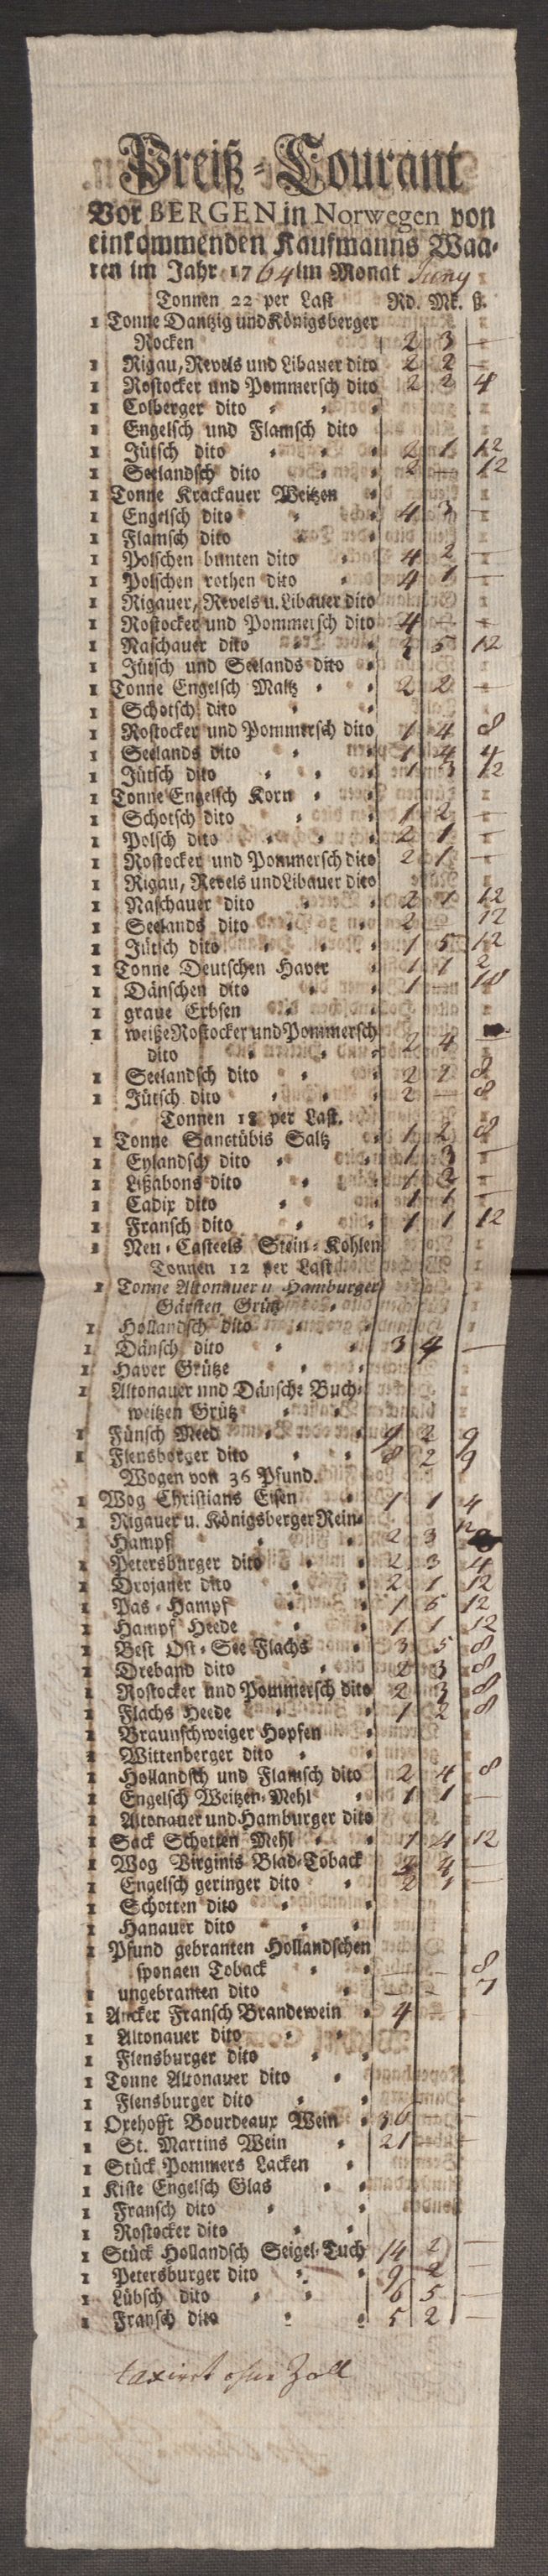 Preiß-Courant
Vor BERGEN in Norwegen von
einkommenden Kaufmanns Waa-
ren im Jahr 1764 im Monat Juny
Tonnen 22 per Last Rd. Mk. ß.
1 Tonne Dantzig und Königsberger
Rocken 2 3 —
1 Rigau, Revels und Libauer dito 2 2 —
1 Rostocker und Pommersch dito 2 2 4
1 Colberger dito
1 Engelsch und Flamsch dito
1 Jütsch dito 2 1 12
1 Seelandsch dito 2 — 12
1 Tonne Krackauer Weitzen
1 Engelsch dito 4 3 —
1 Flamsch dito
1 Polschen bunten dito 4 2 —
1 Polschen rothen dito 4 1 —
1 Rigauer, Revels u. Libauer dito
1 Rostocker und Pommersch dito 4 — —
1 Naschauer dito 5 12
1 Jütsch und Seelands dito
1 Tonne Engelsch Maltz 2 2 —
1 Schotsch dito
1 Rostocker und Pommersch dito 1 4 8
1 Seelands dito 1 4 4
1 Jütsch dito 1 3 12
1 Tonne Engelsch Korn
1 Schotsch dito 1 2 —
1 Polsch dito 2 1 —
1 Rostocker und Pommersch dito 2 1 —
1 Rigau, Revels und Libauer dito
1 Naschauer dito 2 1 12
1 Seelands dito 2 — 12
1 Jütsch dito 1 5 12
1 Tonne Deutschen Haver 1 1 2
1 Dänschen dito 1 — 10
1 graue Erbsen
1 weiße Rostocker und Pommersch
dito 2 4 —
1 Seelandsch dito 2 1 8
1 Jütsch dito 2 — 8
Tonnen 18 per Last.
1 Tonne Sanctübis Saltz 1 2 8
1 Eylandsch dito 1 3 —
1 Lißabons dito 1 2 —
1 Cadix dito 1 1 —
1 Fransch dito 1 1 12
1 Neu-Casteels Stein-Kohlen
Tonnen 12 per Last
1 Tonne Altonauer u. Hamburger
Gärsten Grütz
1 Hollandsch dito
1 Dänsch dito 3 4 —
1 Haver Grütze
1 Altonauer und Dänsche Buch-
weitzen Grütz
1 Fünsch Meed 9 2 9
1 Flensborger dito 8 2 9
Wogen von 36 Pfund.
1 Wog Christians Eisen 1 1 4
1 Rigauer u. Königsberger Rein-
Hampf 2 3 12
1 Petersburger dito 2 3 4
1 Drojaner dito 2 1 12
1 Pas-Hampf 1 5 12
1 Hampf Heede 1 1 12
1 Best Ost-See Flachs 3 5 8
1 Dreband dito 2 3 8
1 Rostocker und Pommersch dito 2 3 8
1 Flachs Heede 1 2 8
1 Braunschweiger Hopfen
1 Wittenberger dito
1 Hollandsch und Flamsch dito 2 4 8
1 Engelsch Weitzen-Mehl 1 1 —
1 Altonauer und Hamburger dito
1 Sack Schotten Mehl 1 4 12
1 Wog Virginis Blad-Toback 3 4 —
1 Engelsch geringer dito 2 1 —
1 Schotten dito
1 Hanauer dito
1 Pfund gebranten Hollandschen
sponnen Toback — — 8
1 ungebranten dito — — 7
1 Ancker Fransch Brandewein 4 —
1 Altonauer dito
1 Flensburger dito
1 Tonne Altonauer dito
1 Flensburger dito
1 Oxehofft Bourdeaux Wein 36 —
1 St. Martins Wein 21 — —
1 Stück Pommers Lacken
1 Kiste Engelsch Glas
1 Fransch dito
1 Rostocker dito
1 Stück Hollandsch Seigel-Tuch 14 2 —
1 Petersburger dito 9 2 —
1 Lübsch dito 6 5 —
1 Fransch dito 5 2 —
taxiert ohne Zoll